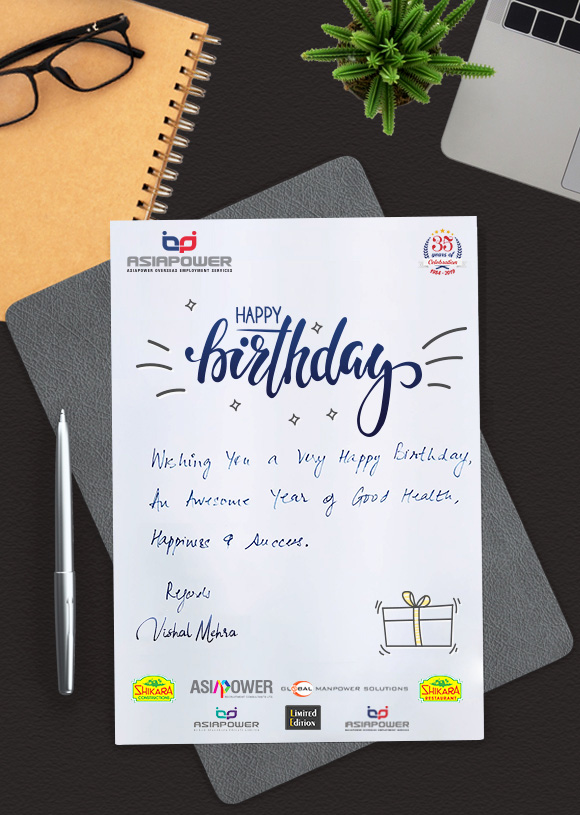 ASIAPOWER
ASIAPOWER OVERSEAS EMPLOYMENT SERVICES
35
years of
Celebration
1984 - 2019
HAPPY
birthday
Wishing You a Very Happy Birthday,
An Awesome Year of Good Health,
Happiness & Success.
Regards
Vishal Mehra
SHIKARA
CONSTRUCTIONS
ASIAPOWER
GLOBAL MANPOWER SOLUTIONS
SHIKARA
RESTAURANT
ASIAPOWER
Limited
Edition
ASIAPOWER